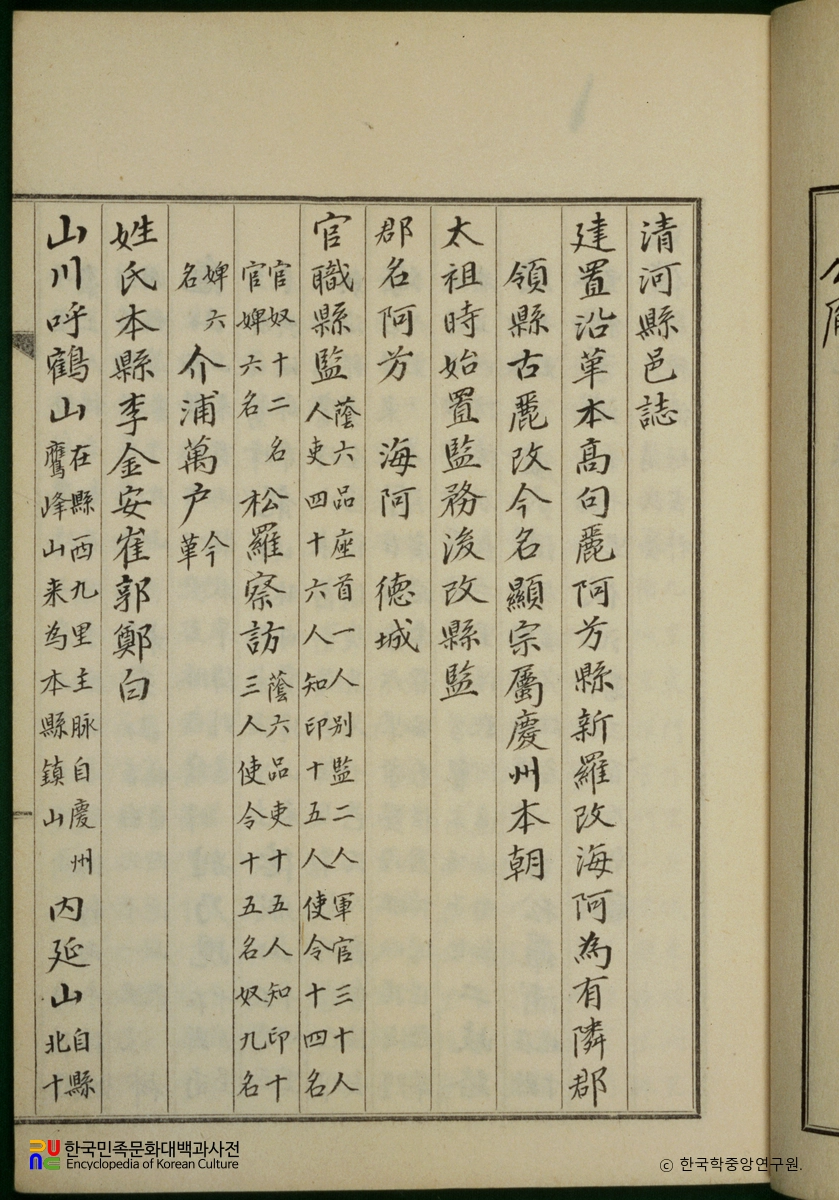 清河縣邑誌
建置沿革本高句麗阿芳縣新羅改海阿為有隣郡
領縣古麗改今名顯宗屬慶州本朝
太祖時始置監務後改縣監
郡名阿芳 海阿 德城
官職縣監蔭六品座首一人别監二人軍官三十人人吏四十六人知印十五人使令十四名
官奴十二名官婢六名松羅察訪蔭六品吏十五人知印十三人使令十五名奴九名
婢六名介浦萬户今革
姓氏本縣李金安崔郭鄭白
山川呼鶴山在縣西九里主脉自慶州鷹峰山来為本縣鎮山内延山自縣北十
한국민족문화대백과사전
Encyclopedia of Korean Culture
© 한국학중앙연구원.